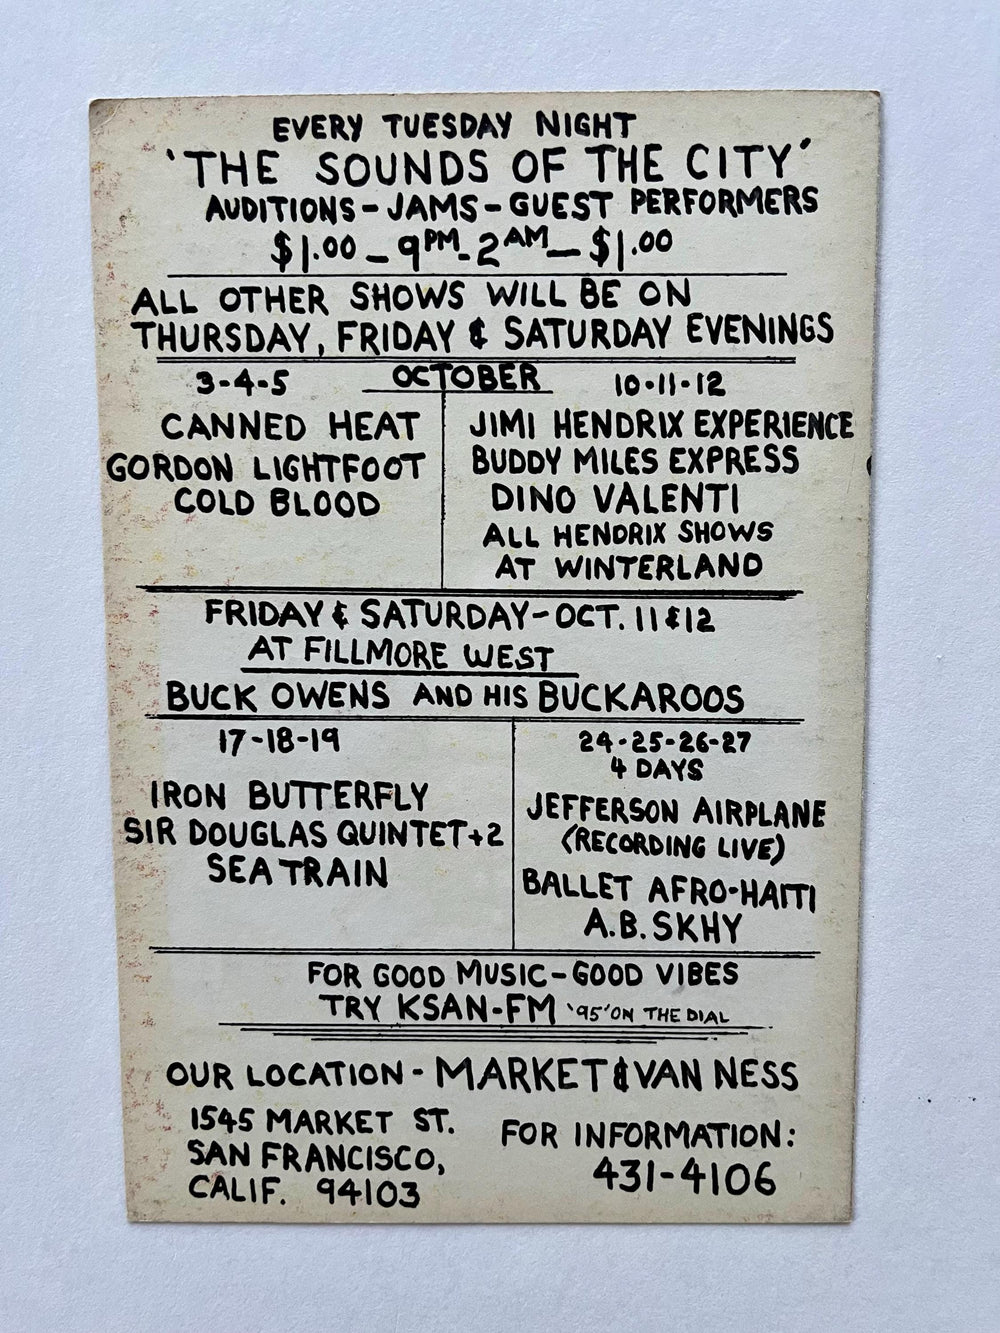 EVERY TUESDAY NIGHT
'THE SOUNDS OF THE CITY'
AUDITIONS-JAMS-GUEST PERFORMERS
$1.00-9PM-2AM-$1.00
ALL OTHER SHOWS WILL BE ON
THURSDAY, FRIDAY & SATURDAY EVENINGS
OCTOBER
3-4-5
CANNED HEAT
GORDON LIGHTFOOT
COLD BLOOD
10-11-12
JIMI HENDRIX EXPERIENCE
BUDDY MILES EXPRESS
DINO VALENTI
ALL HENDRIX SHOWS
AT WINTERLAND
FRIDAY & SATURDAY-OCT. 11&12
AT FILLMORE WEST
BUCK OWENS AND HIS BUCKAROOS
17-18-19
IRON BUTTERFLY
SIR DOUGLAS QUINTET+2
SEA TRAIN
24-25-26-27
4 DAYS
JEFFERSON AIRPLANE
(RECORDING LIVE)
BALLET AFRO-HAITI
A.B. SKHY
FOR GOOD MUSIC-GOOD VIBES
TRY KSAN-FM '95' ON THE DIAL
OUR LOCATION - MARKET & VAN NESS
1545 MARKET ST.
SAN FRANCISCO,
CALIF. 94103
FOR INFORMATION:
431-4106